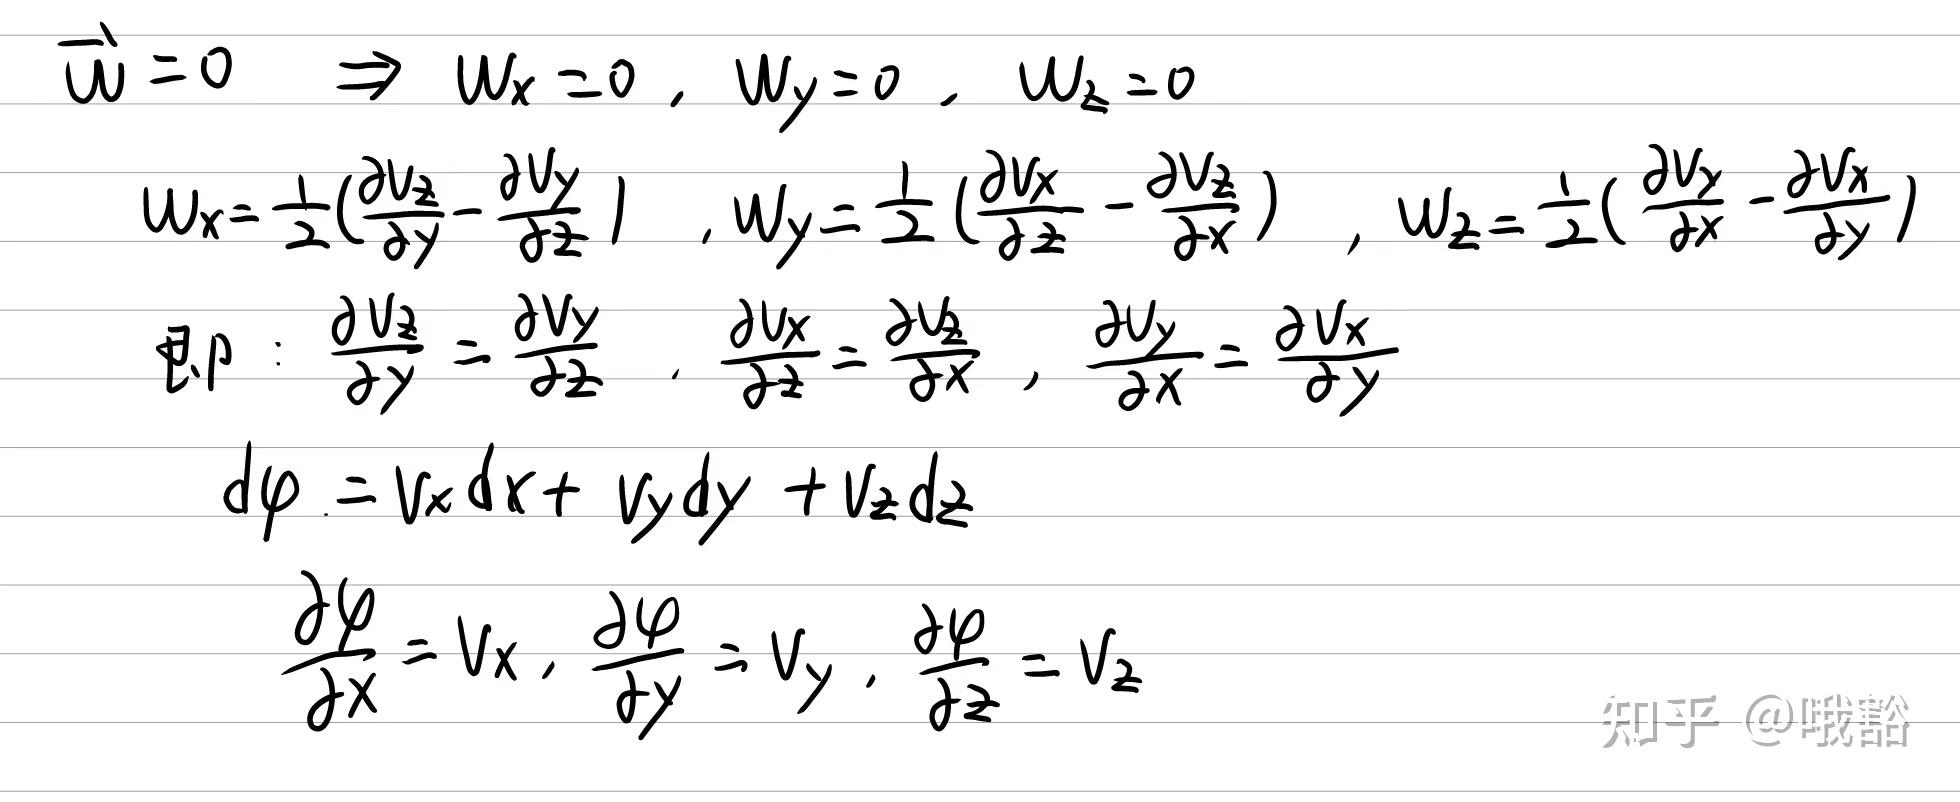 $\vec{w} = 0 \Rightarrow w_x = 0, w_y = 0, w_z = 0$
$w_x = \frac{1}{2}(\frac{\partial v_z}{\partial y} - \frac{\partial v_y}{\partial z}), w_y = \frac{1}{2}(\frac{\partial v_x}{\partial z} - \frac{\partial v_z}{\partial x}), w_z = \frac{1}{2}(\frac{\partial v_y}{\partial x} - \frac{\partial v_x}{\partial y})$
即: $\frac{\partial v_z}{\partial y} = \frac{\partial v_y}{\partial z}, \frac{\partial v_x}{\partial z} = \frac{\partial v_z}{\partial x}, \frac{\partial v_y}{\partial x} = \frac{\partial v_x}{\partial y}$
$d\varphi = v_x dx + v_y dy + v_z dz$
$\frac{\partial \varphi}{\partial x} = v_x, \frac{\partial \varphi}{\partial y} = v_y, \frac{\partial \varphi}{\partial z} = v_z$
知乎 @哦豁